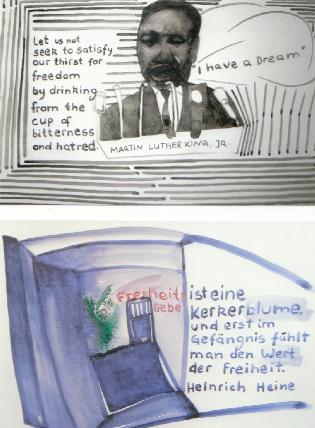 Let us not
seek to satisfy
our thirst for
freedom
by drinking
from the
cup of
bitterness
and hatred.
"I have a Dream"
MARTIN LUTHER KING, JR.
Freiheit ist eine
Gebe Kerkerblume,
und erst im
Gefängnis fühlt
man den Wert
der Freiheit.
Heinrich Heine